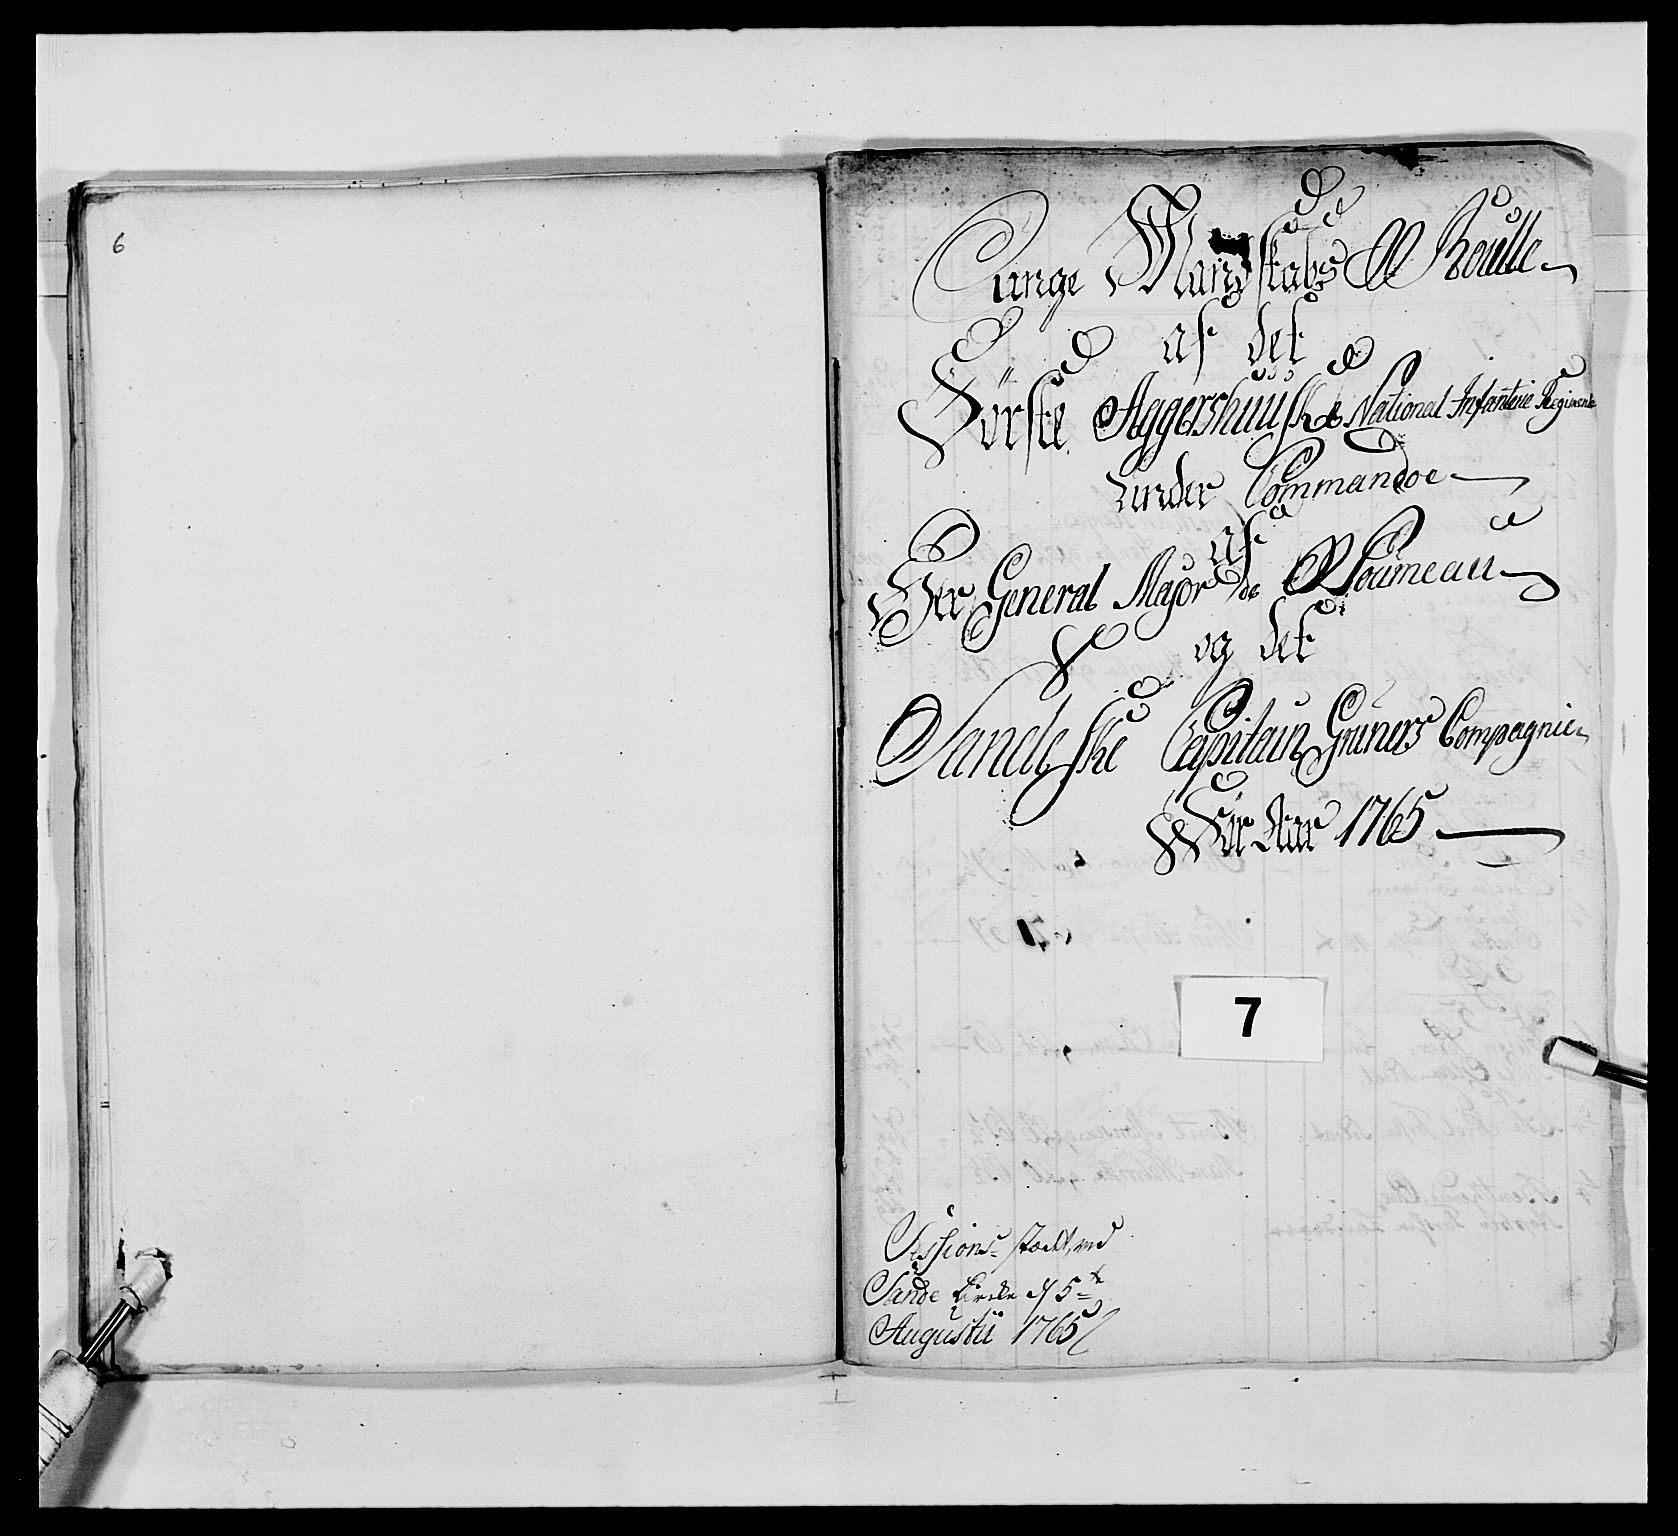 6
Unge Mandskabs Roulle
af det
Förste Aggershuuske National Infanterie Regiment
under Commando
af
Herr General Major de
og det
Sandeske Capitain Grüners Compagnie
För Aar 1765
7
Sessions
Sande Kircke d 5te
Augustii 1765